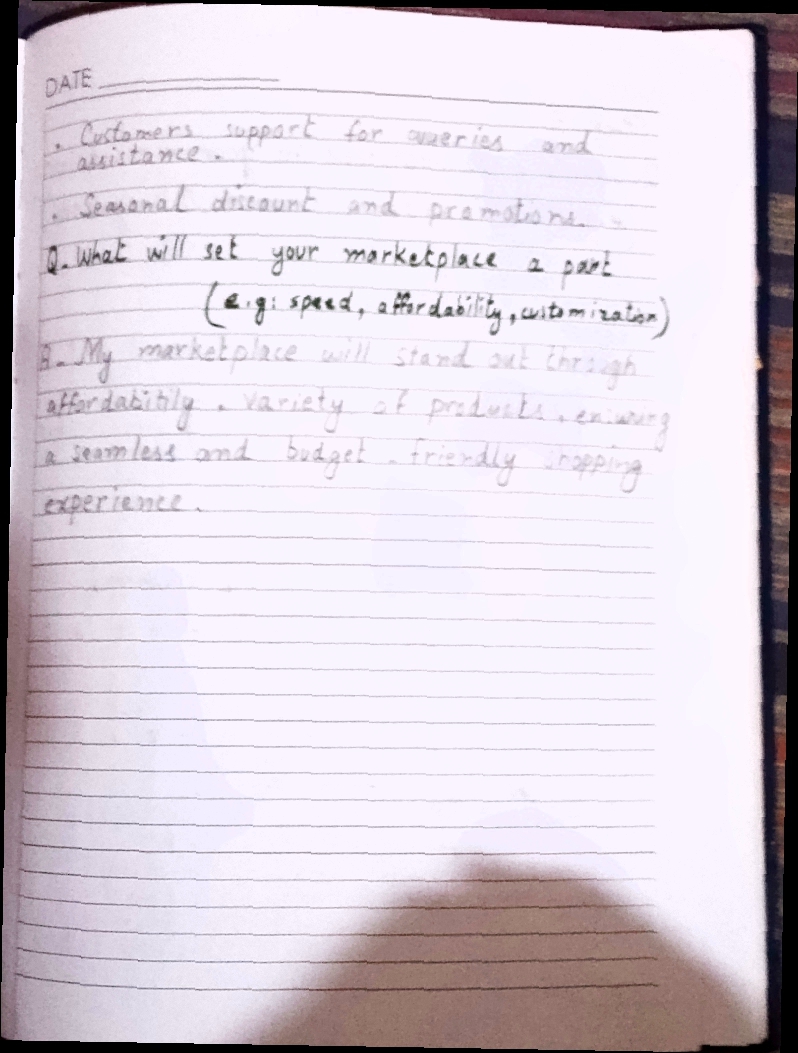 DATE
. Customers support for queries and
assistance.
. Seasonal discount and promotions.
Q. What will set your marketplace a part
(e.g: speed, affordability, customization)
A. My marketplace will stand out through
affordabitily. variety of products. ensuring
a seamless and budget - friendly shopping
experience.